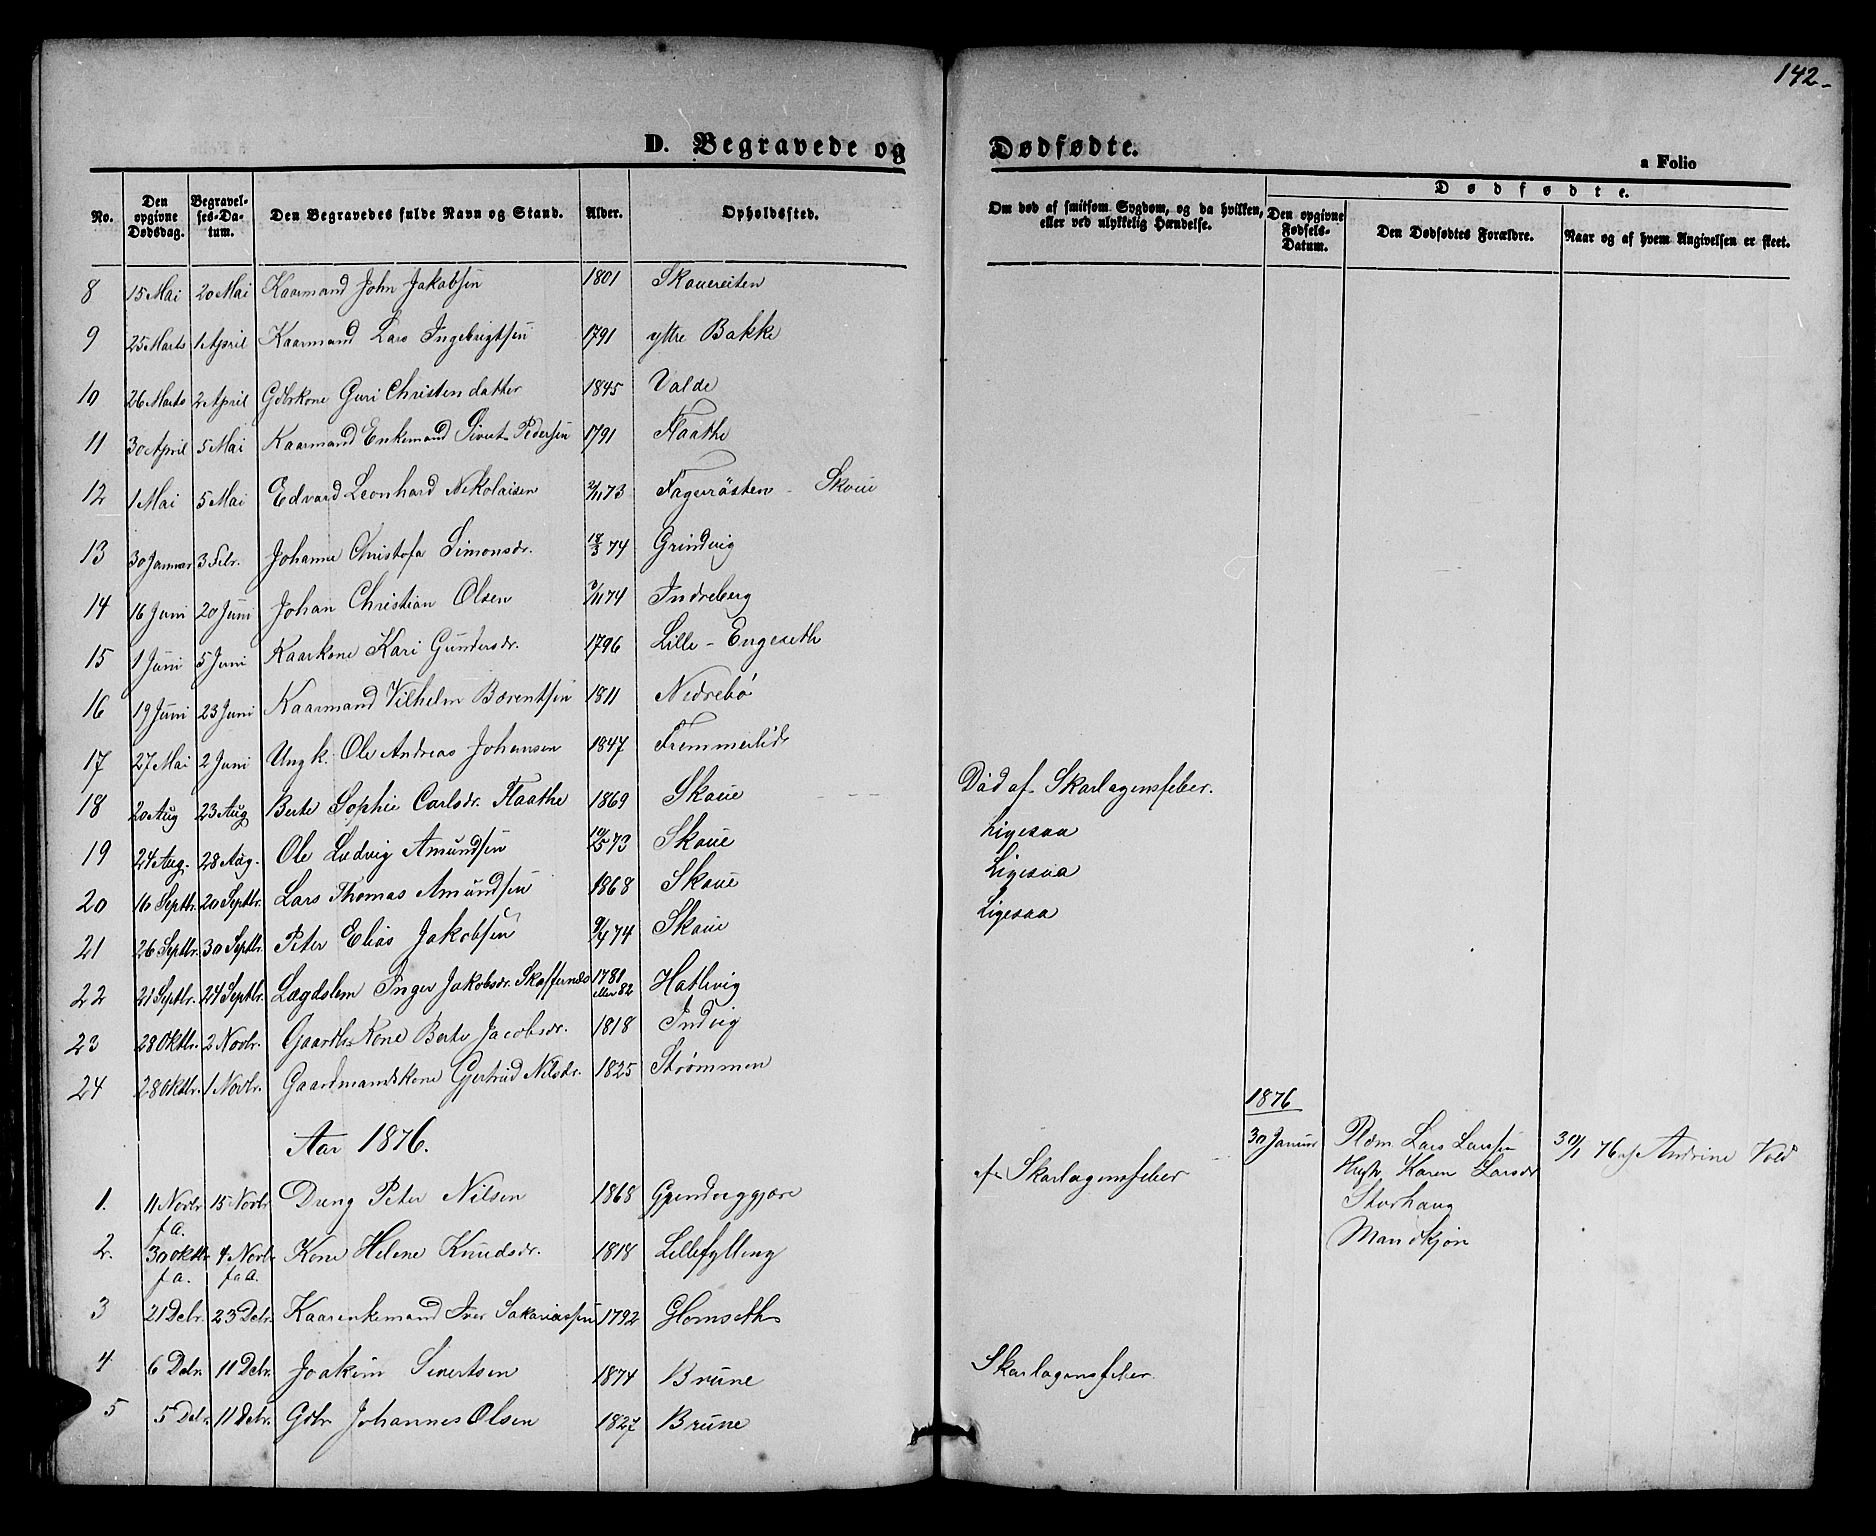 142-
D. Begravede og Dødfødte.
a Folio
No. Den opgivne Dødsdag. Begravelses-Datum. Den Begravedes fulde Navn og Stand. Alder. Opholdssted. Om død af smitsom Sygdom, og da hvilken, eller ved ulykkelig Hændelse. Dødfødte.
Den opgivne Fødsels-Datum. Den Dødfødtes Forældre. Naar og af hvem Angivelsen er skeet.
8 15 Mai 20 Mai Kaarmand John Jakobsen 1801 Skouereiten
9 25 Marts 1 April Kaarmand Lars Ingebrigtsen 1791 yttre Bakke
10 26 Marts 2 April Gdbrkone Guri Christendatter 1845 Valde
11 30 April 5 Mai Kaarmand Enkemand Sivert Pedersen 1791 Flaathe
12 1 Mai 5 Mai Edvard Leonhard Nikolaisen 2/11 73 Fagerrösten - Skoue
13 30 Januar 3 Febr. Johanne Christofa Simonsdr. 18/3 74 Grindvig
14 16 Juni 20 Juni Johan Christian Olsen /11 74 Indreberg
15 1 Juni 5 Juni Kaarkone Kari Gundersdr. 1796 Lille-Engeseth
16 19 Juni 23 Juni Kaarmand Vilhelm Bærentsen 1811 Nedrebö
17 27 Mai 2 Juni Ungk. Ole Andreas Johansen 1847 Fremmerlid
18 20 Aug 23 Aug Berte Sophie Carlsdr. Flaathe 1869 Skoue Död af Skarlagensfeber.
19 24 Aug. 28 Aug. Ole Ludvig Amundsen 10/5 73 Skoue Ligesaa
20 16 Septbr. 20 Septbr. Lars Thomas Amundsen 1868 Skoue Ligesaa
21 26 Septbr. 30 Septbr. Peter Elias Jakobsen 9/4 74 Skoue Ligesaa
22 21 Septbr. 24 Septbr. Lægdslem Inger Jakobsdr. Skaffernæs 1781 eller 82 Hatlevig
23 28 Oktbr. 2 Novbr. Gaardb.Kone Berte Jacobsdr. 1818 Indvig
24 28 Oktbr. 1 Novbr. Gaardmandskone Gjertrud Nilsdr. 1825 Strømmen
1876
Aar 1876.
30 Januar Pldm. Lars Larsen 30/1 76 af Andrine Vold
Hustr. Karen Larsdr
Storhaug
Mandkjön
1. 11 Novbr f.A. 15 Novbr Dreng Peter Nilsen 1868 Grindviggjære af Skarlagensfeber
2. 30 Oktbr. f.a. 4 Novbr. f.a. Kone Helene Knudsdr. 1818 Lillefylling
3 21 Debr. 23 Debr. Kaarenkemand Iver Sakariassen 1792 Glomseth
4 6 Debr. 11 Debr. Joakim Sivertsen 1874 Brune Skarlagensfeber.
5 5 Debr. 11 Debr. Gdbr Johannes Olsen 1827 Brune